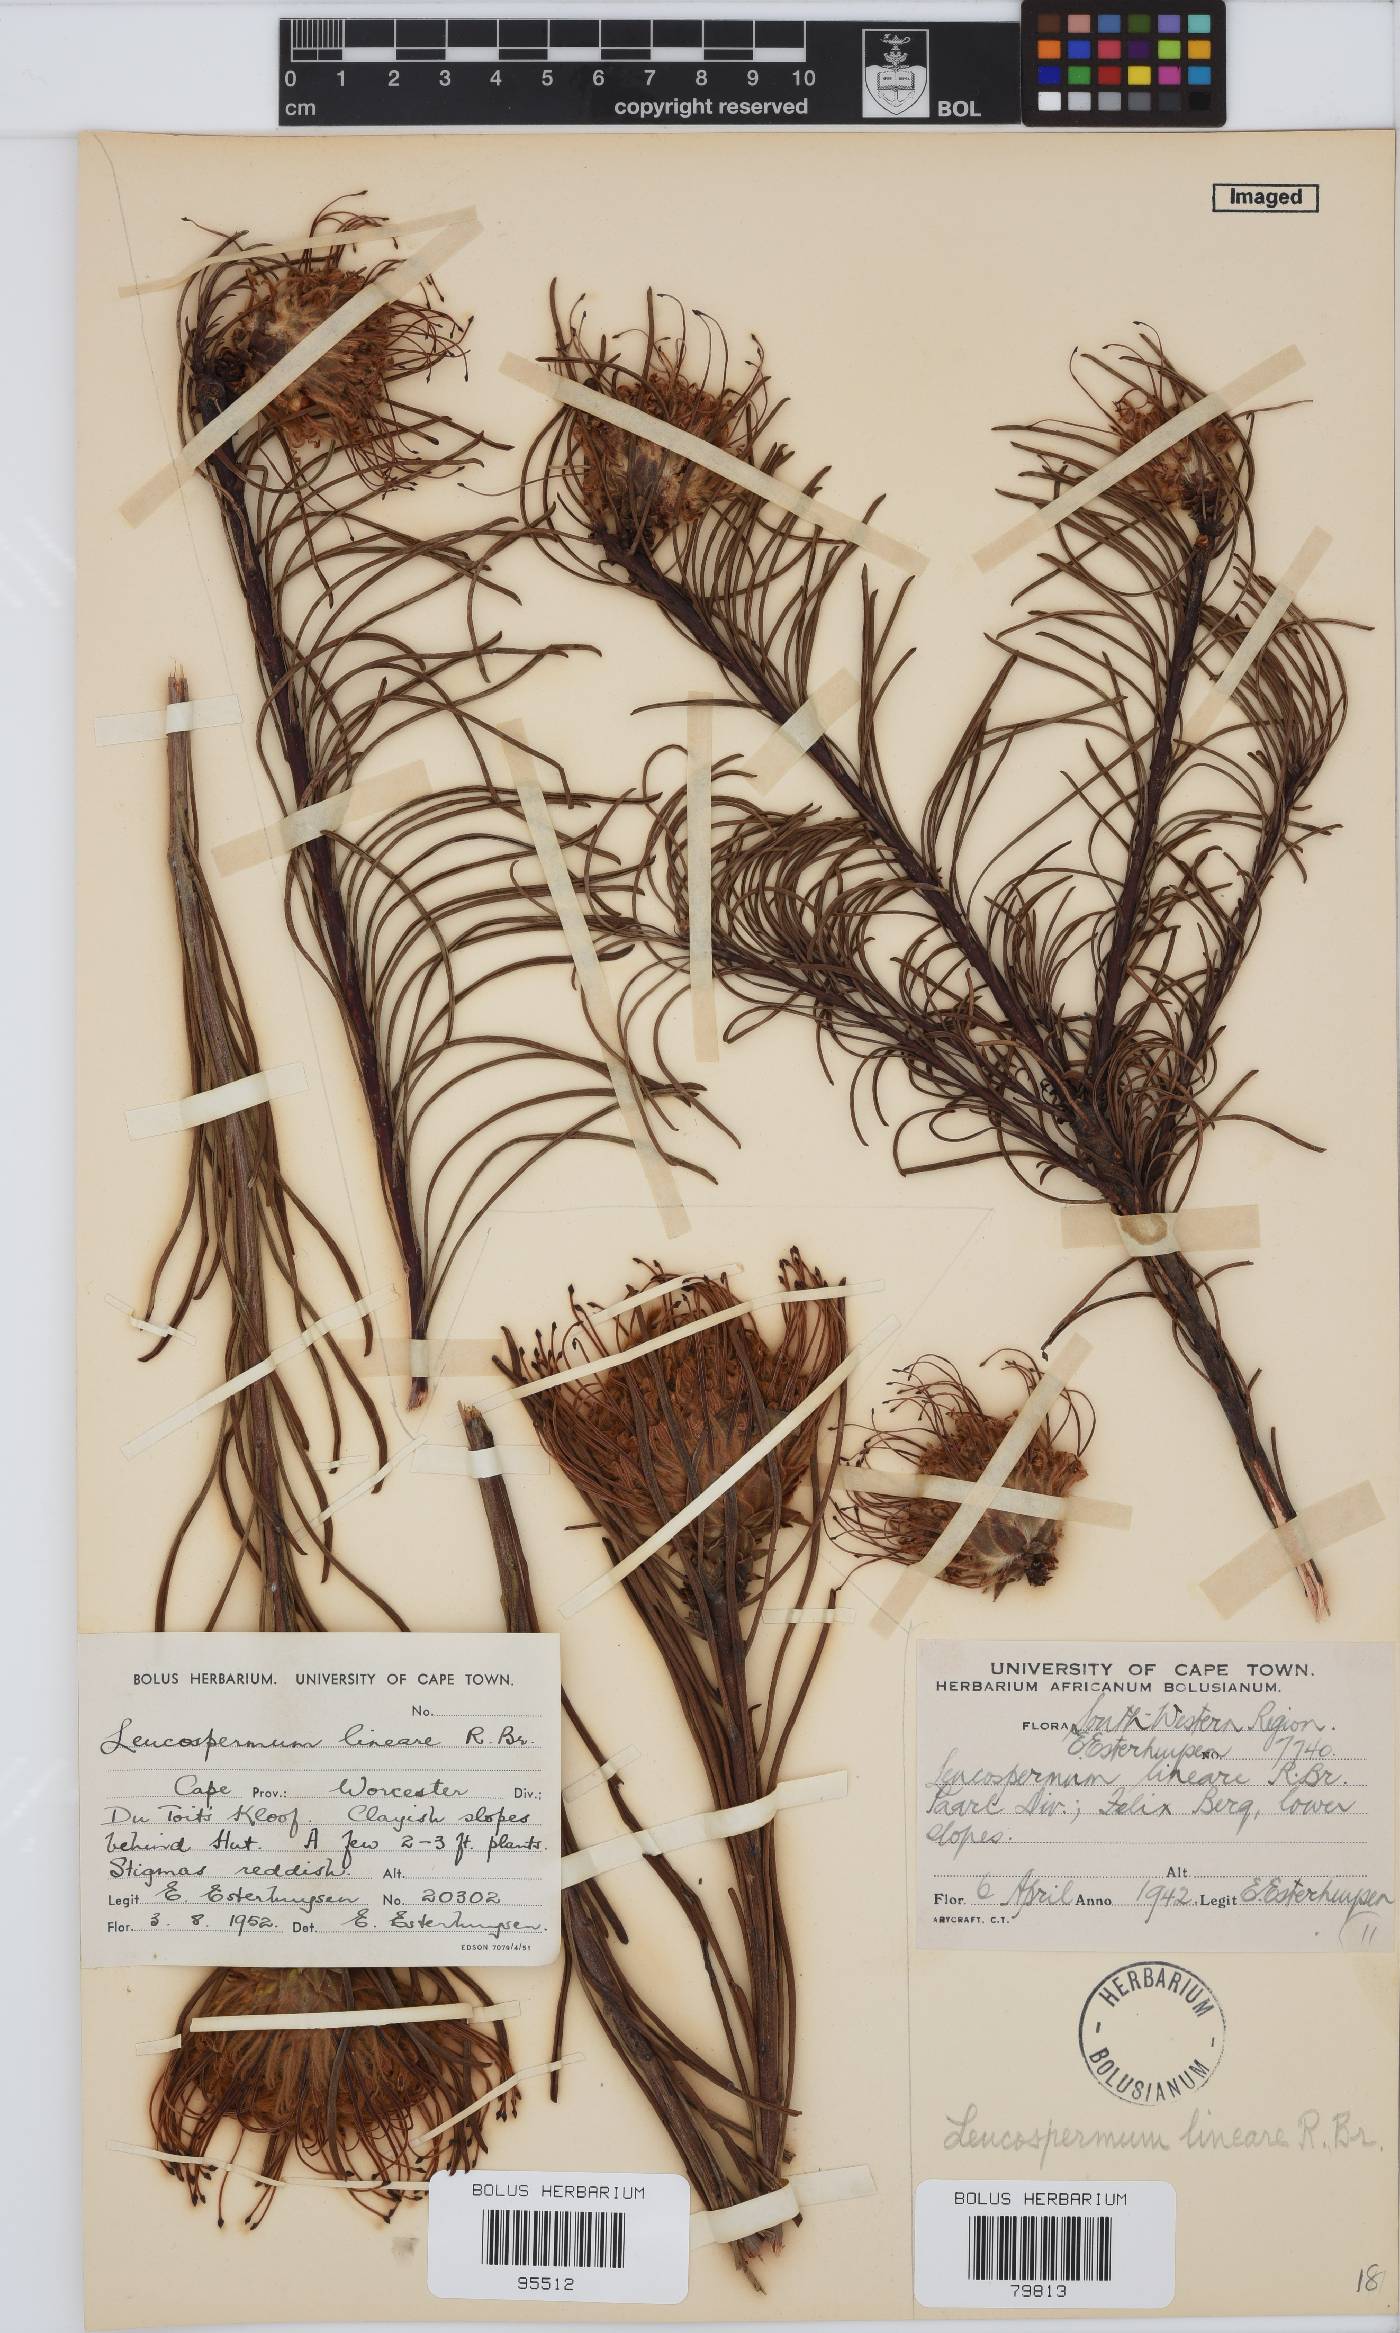 0 1 2 3 4 5 6 7 8 9 10
cm copyright reserved
BOL
Imaged
BOLUS HERBARIUM. UNIVERSITY OF CAPE TOWN.
No.
Leucospermum lineare R. Br.
Cape Prov.: Worcester Div.;
Du Toit's Kloof. Clayish slopes
behind Hut. A few 2-3 ft. plants.
Stigmas reddish. Alt.
Legit E. Esterhuysen No. 20302
Flor. 3. 8. 1952. Det. E. Esterhuysen.
EDSON 7079/4/51
UNIVERSITY OF CAPE TOWN.
HERBARIUM AFRICANUM BOLUSIANUM.
FLORA South Western Region.
E. Esterhuysen No. 7740.
Leucospermum lineare R. Br.
Paarl Div.; Felix Berg, lower
slopes.
Alt
Flor. 6 April Anno 1942. Legit E. Esterhuysen
ARYCRAFT, C.T.
11
HERBARIUM
- -
BOLUSIANUM
Leucospermum lineare R. Br.
BOLUS HERBARIUM
95512
BOLUS HERBARIUM
79813
18